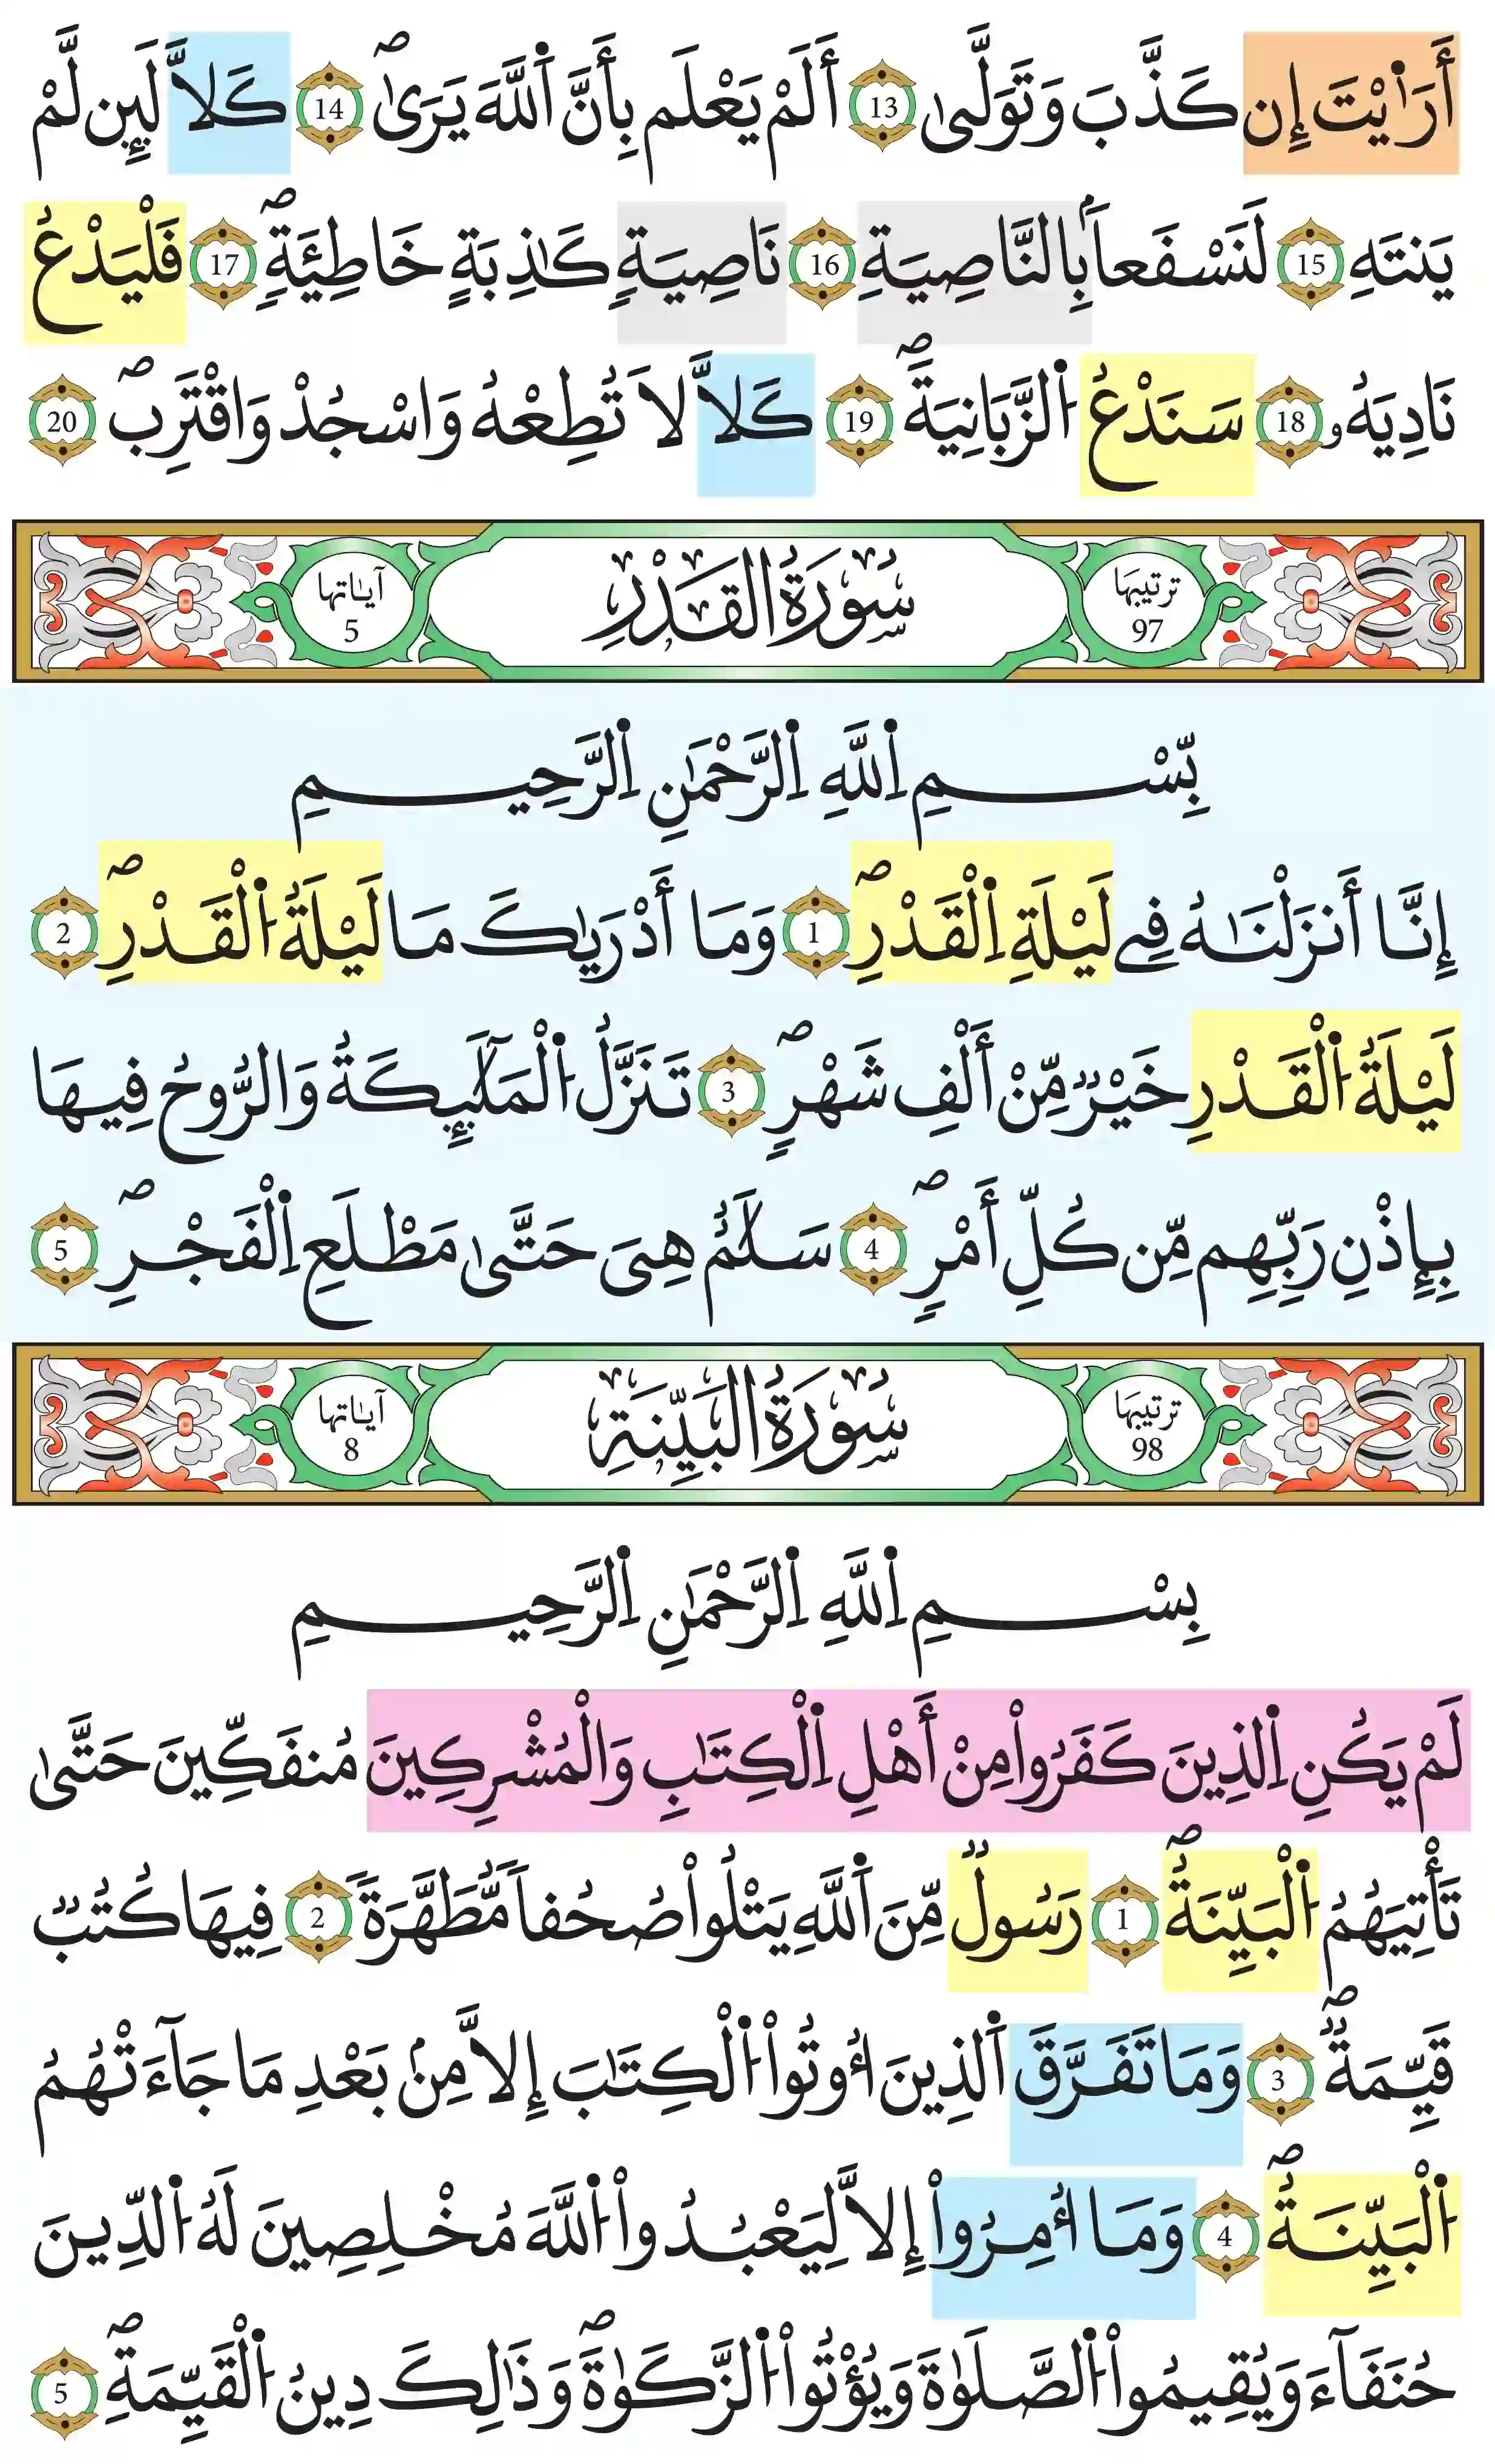 أَرَٰيْتَ إِن كَذَّبَ وَتَوَلَّىٰ 13 أَلَمْ يَعْلَم بِأَنَّ اَللَّهَ يَرَىٰ 14 كَلاَّ لَئِن لَّمْ
يَنتَهِ 15 لَنَسْفَعاَۢ بِالنَّاصِيَةِ 16 نَاصِيَةٍ كَٰذِبَةٍ خَاطِئَةٍ 17 فَلْيَدْعُ
نَادِيَهُۥ 18 سَنَدْعُ اُلزَّبَانِيَةَ 19 كَلاَّ لاَ تُطِعْهُ وَاسْجُدْ وَاقْتَرِب 20
ترتيبها 97 سُورَةُ القَدْرِ آياتها 5
بِّسْمِ اِللَّهِ اِلرَّحْمَٰنِ اِلرَّحِيمِ
إِنَّا أَنزَلْنَٰهُ فِے لَيْلَةِ اِلْقَدْرِ 1 وَمَا أَدْرَيٰكَ مَا لَيْلَةُ اُلْقَدْرِ 2
لَيْلَةُ اُلْقَدْرِ خَيْرٌ مِّنْ أَلْفِ شَهْرٍ 3 تَنَزَّلُ اُلْمَلَٰٓئِكَةُ وَالرُّوحُ فِيهَا
بِإِذْنِ رَبِّهِم مِّن كُلِّ أَمْرٍ 4 سَلَٰمٌ هِيَ حَتَّىٰ مَطْلَعِ اِلْفَجْرِ 5
ترتيبها 98 سُورَةُ البَيِّنَةِ آياتها 8
بِسْمِ اِللَّهِ اِلرَّحْمَٰنِ اِلرَّحِيمِ
لَمْ يَكُنِ اِلذِينَ كَفَرُواْ مِنْ أَهْلِ اِلْكِتَٰبِ وَالْمُشْرِكِينَ مُنفَكِّينَ حَتَّىٰ
تَأْتِيَهُمُ اُلْبَيِّنَةُ 1 رَسُولٌ مِّنَ اَللَّهِ يَتْلُواْ صُحُفاً مُّطَهَّرَةً 2 فِيهَا كُتُبٌ
قَيِّمَةٌ 3 وَمَا تَفَرَّقَ اَلذِينَ أُوتُواْ اُلْكِتَٰبَ إِلاَّ مِنۢ بَعْدِ مَا جَآءَتْهُمُ
اُلْبَيِّنَةُ 4 وَمَا أُمِرُواْ إِلاَّ لِيَعْبُدُواْ اُللَّهَ مُخْلِصِينَ لَهُ اُلدِّينَ
حُنَفَآءَ وَيُقِيمُواْ اُلصَّلَوٰةَ وَيُؤْتُواْ اُلزَّكَوٰةَ وَذَٰلِكَ دِينُ اُلْقَيِّمَةِ 5